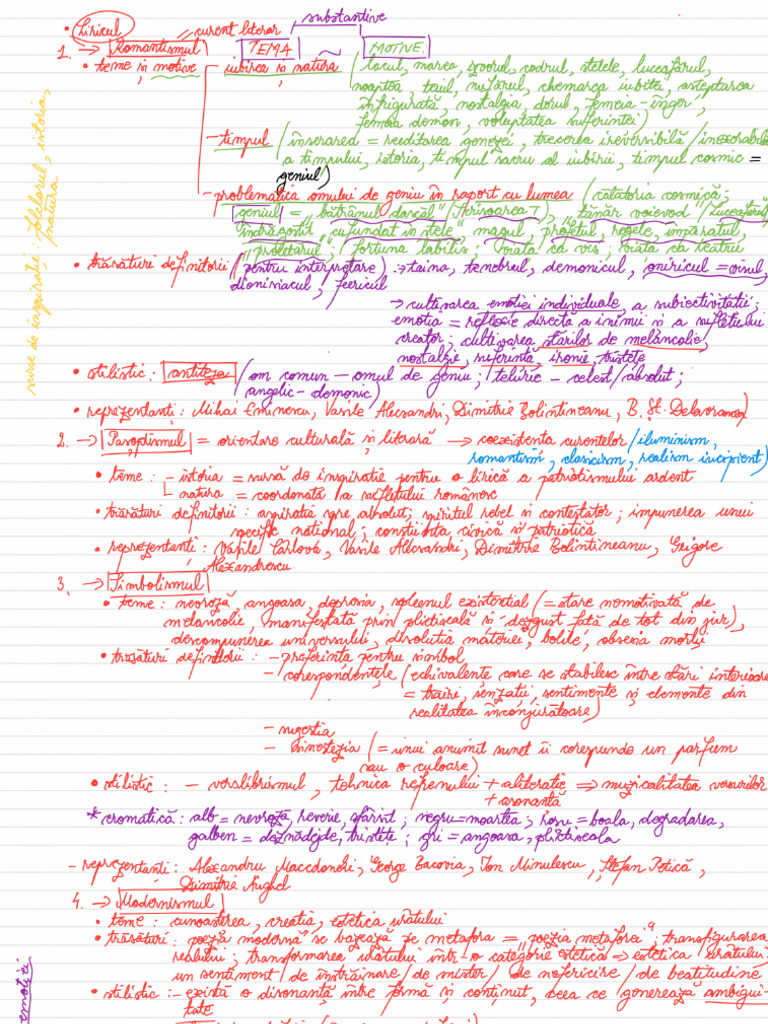 substantive
• Liricul
curent literar
1. → Romantismul TEMA MOTIVE
• teme și motive – iubirea și natura (lacul, marea, izvorul, codrul, stelele, luceafărul,
noaptea, teiul, nufărul, chemarea iubitei, așteptarea
înfrigurată, nostalgia, dorul, femeia-înger,
femeia demon, voluptatea suferinței)
– timpul (înserarea = reeditarea genezei, trecerea ireversibilă/inexorabilă
a timpului, istoria, timpul sacru al iubirii, timpul cosmic =
geniul)
– problematica omului de geniu în raport cu lumea (călătoria cosmică;
geniul = „bătrânul dascăl" Scrisoarea I, tânăr voievod / Luceafărul
îndrăgostit „cufundat în stele" magul, profetul, regele, împăratul,
„proletarul", fortuna labilis, viața ca vis, viața ca teatru
surse de inspirație: folclorul, istoria,
natura
• trăsături definitorii (pentru interpretare) → taina, tenebrul, demonicul, oniricul = visul,
dionisiacul, feericul
→ cultivarea emoției individuale, a subiectivității;
emoția = reflexie directă a inimii și a sufletului
creator; cultivarea stărilor de melancolie,
nostalgie, suferință, ironie, tristețe
• stilistic: antiteza (om comun – omul de geniu; teluric – celest/absolut;
angelic – demonic)
• reprezentanți: Mihai Eminescu, Vasile Alecsandri, Dimitrie Bolintineanu, B. Șt. Delavrancea)
2. → Pașoptismul = orientare culturală și literară → coexistența curentelor (iluminism,
romantism, clasicism, realism incipient)
• teme: – istoria = sursă de inspirație pentru o lirică a patriotismului ardent
natura = coordonată a sufletului românesc
• trăsături definitorii: aspirația spre absolut; spiritul rebel și contestatar; impunerea unui
specific național; conștiința civică și patriotică
• reprezentanți: Vasile Cârlova, Vasile Alecsandri, Dimitrie Bolintineanu, Grigore
Alexandrescu
3. → Simbolismul
• teme: nevroză, angoasa, depresia, spleenul existențial (= stare nemotivată de
melancolie, manifestată prin plictiseală și dezgust față de tot din jur),
descompunerea universului, disoluția materiei, bolile, obsesia morții
• trăsături definitorii: – preferința pentru simbol
– corespondențele (echivalențe care se stabilesc între stări interioare
= trăiri, senzații, sentimente și elemente din
realitatea înconjurătoare)
– sugestia
– sinestezia (= unui anumit sunet îi corespunde un parfum
sau o culoare)
• stilistic: – verslibrismul, tehnica refrenului + aliterație ⇒ muzicalitatea versurilor
+ asonanță
* cromatică: alb = nevroză, reverie, sfârșit; negru = moartea; roșu = boala, degradarea,
galben = deznădejde, tristețe; gri = angoasa, plictiseala
– reprezentanți: Alexandru Macedonski, George Bacovia, Ion Minulescu, Ștefan Petică,
Dimitrie Anghel
4. → Modernismul
• teme: cunoașterea, creația, estetica urâtului
• trăsături: poezia modernă se bazează pe metafora = „poezia metaforă"; transfigurarea
realului; transformarea urâtului într-o categorie estetică → estetica urâtului;
un sentiment de înstrăinare/de mister/de nefericire/de beatitudine
• stilistic: – există o disonanță între formă și conținut, ceea ce generează ambigui-
tate
emoției